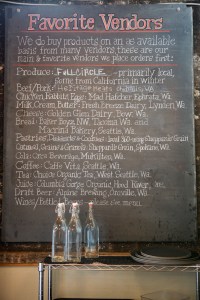 Favorite Vendors
We do buy products on an as available
basis from many vendors, these are our
main & favorite vendors we place orders first:
Produce: FULL CIRCLE - primarily local,
some from California in winter
Beef/Pork:
Chicken, Rabbit, Eggs: Mad Hatcher, Ephrata, Wa.
Milk, Cream, Butter: Fresh Breeze Dairy, Lynden, Wa.
Cheese: Golden Glen Dairy, Bow, Wa.
Bread: Baker Boys, NW, Tacoma, Wa. and
Macrina Bakery, Seattle, Wa.
Pastries, Desserts: Local 360 using Shepherd's Grain
Oatmeal, Grains & Granola: Shepherd's Grain, Spokane, Wa.
Cola: Crater Beverage, Mukilteo, Wa.
Coffee: Caffe Vita, Seattle, Wa.
Tea: Choice Organic Tea, West Seattle, Wa.
Juice: Columbia Gorge Organic, Hood River,
Draft Beer: Alpine Brewing, Oroville, Wa.
Wines/Bottled Beer: